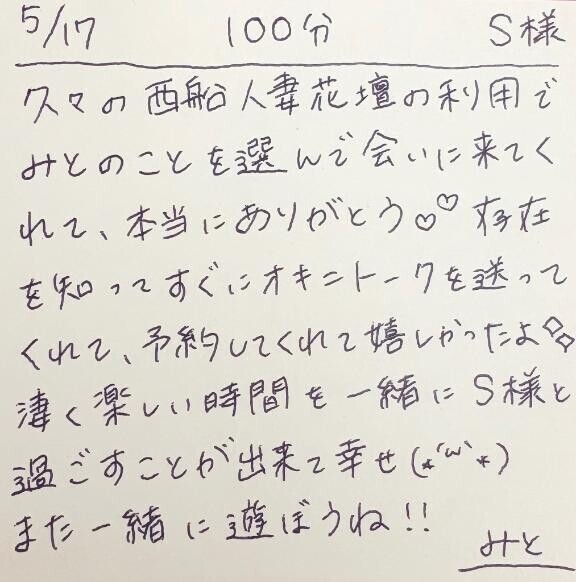 5/17 100分 S様
久々の西船人妻花壇の利用で
みとのことを選んで会いに来てく
れて、本当にありがとう♡♡存在
を知ってすぐにオキニトークを送って
くれて、予約してくれて嬉しかったよ
凄く楽しい時間を一緒にS様と
過ごすことが出来て幸せ(*´ω`*)
また一緒に遊ぼうね!!
みと